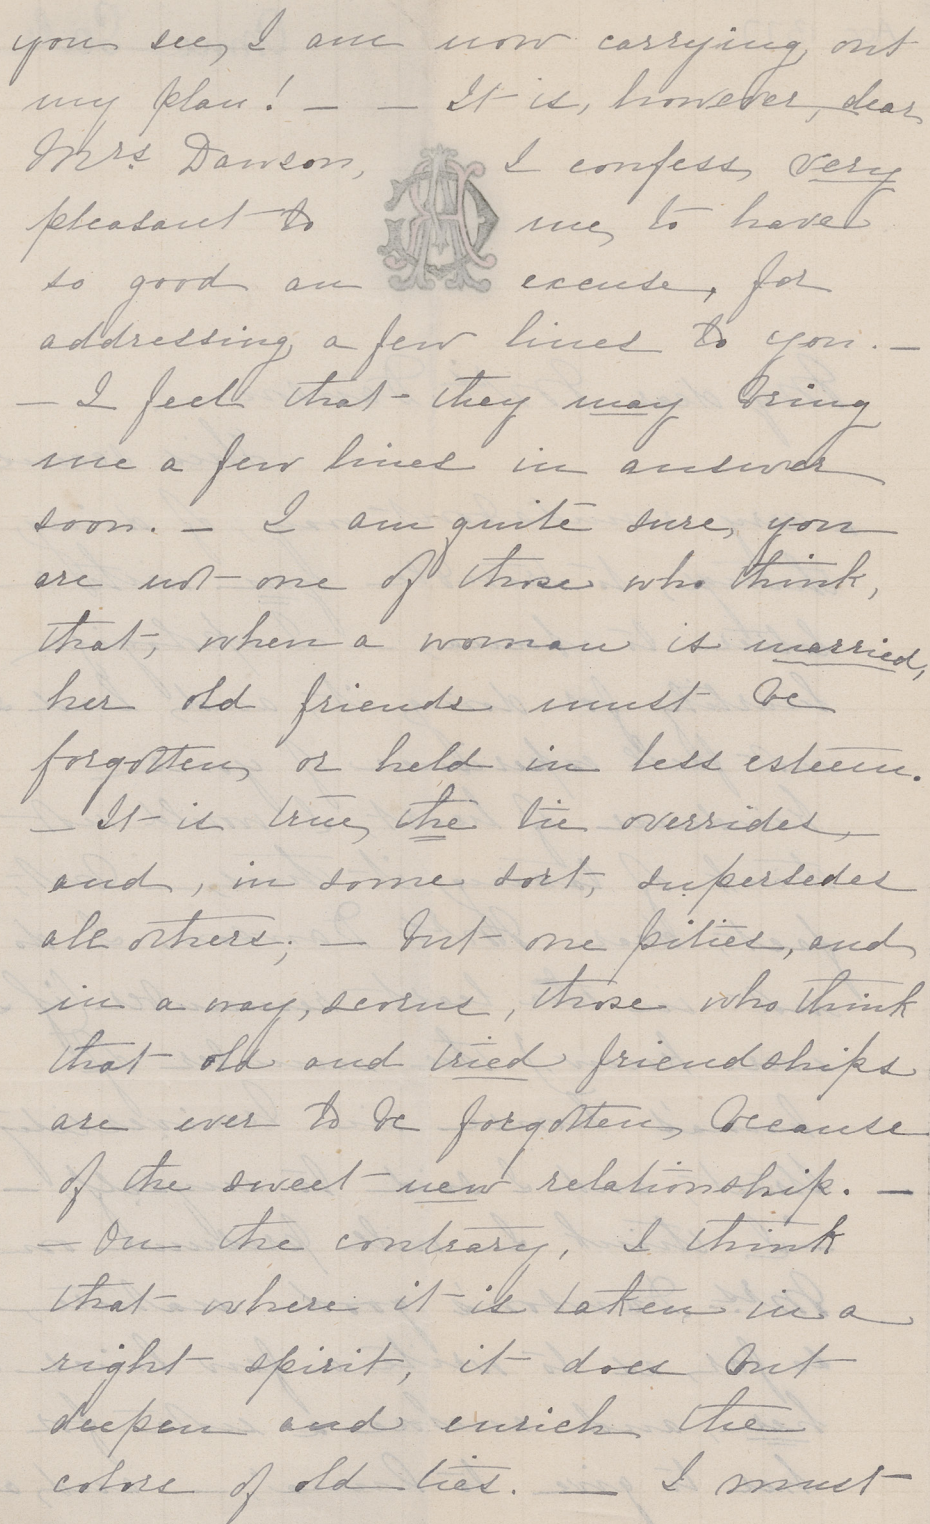 you see, I am now carrying out
my plan! — — It is, however, dear
Mrs Dawson, I confess, very
pleasant to me, to have
so good an excuse, for
addressing a few lines to you. —
— I feel that they may bring
me a few lines in answer
soon. — I am quite sure, you
are not one of those who think,
that, when a woman is married,
her old friends must be
forgotten, or held in less esteem.
— It is true, the tie overrides,
and, in some sort, supersedes
all others; — but one pities, and
in a way, scorns, those who think
that old and tried friendships
are ever to be forgotten, because
of the sweet new relationship. —
— On the contrary, I think
that where it is taken in a
right spirit, it does but
deepen and enrich the
colors of old ties. — I must